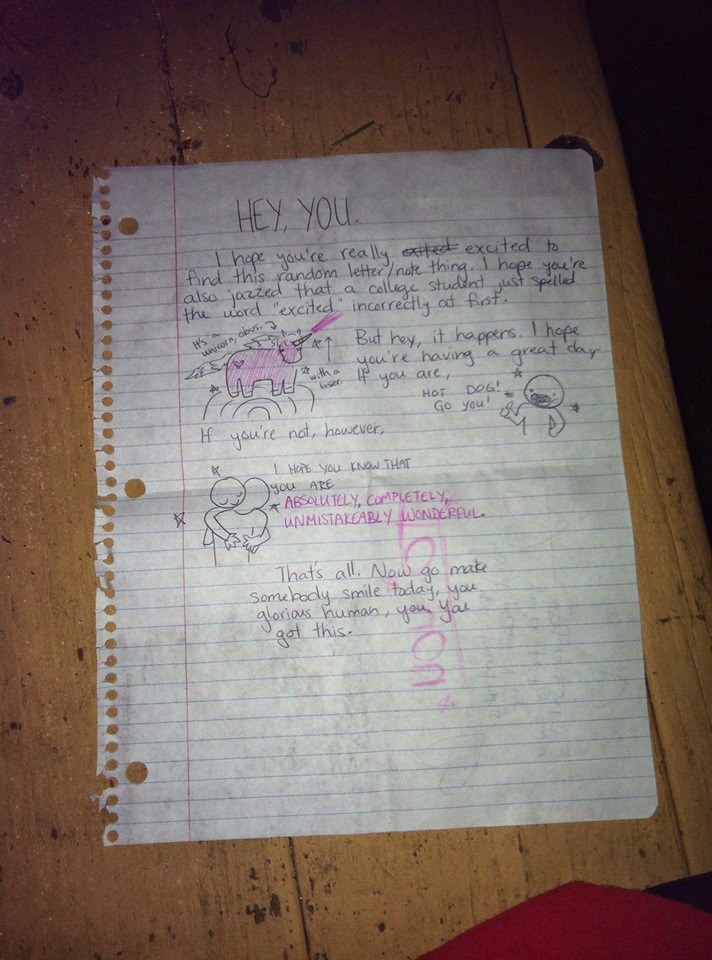 HEY, YOU.
I hope you're really exited excited to
find this random letter/note thing. I hope you're
also jazzed that a college student just spelled
the word "excited" incorrectly at first.
It's a
unicorn, obvs.
with a
laser.
But hey, it happens. I hope
you're having a great day.
If you are,
HOT DOG!
GO YOU!
If you're not, however,
I HOPE YOU KNOW THAT
YOU ARE
ABSOLUTELY, COMPLETELY,
UNMISTAKEABLY WONDERFUL.
That's all. Now go make
somebody smile today, you
glorious human, you. You
got this.